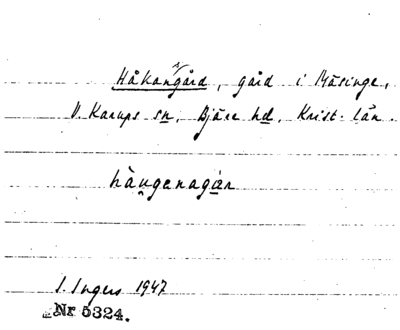 Håkansgård, gård i Päsinge,
V. Karups sn, Bjäre hd, Krist. län.
hàugenagár
I. Ingers 1947
Nr 5324.